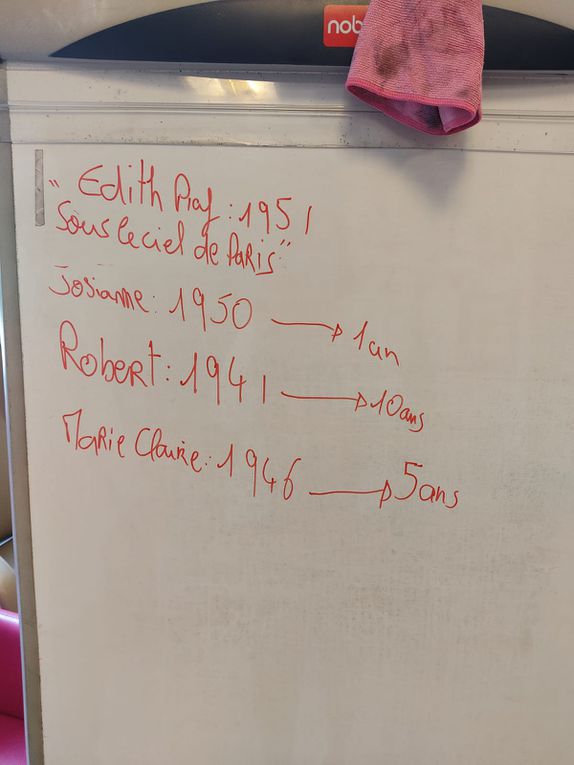 nob
" Edith Piaf : 1951
Sous le ciel de Paris "
Josianne : 1950 → 1 an
Robert : 1941 → 10 ans
Marie Claire : 1946 → 5 ans